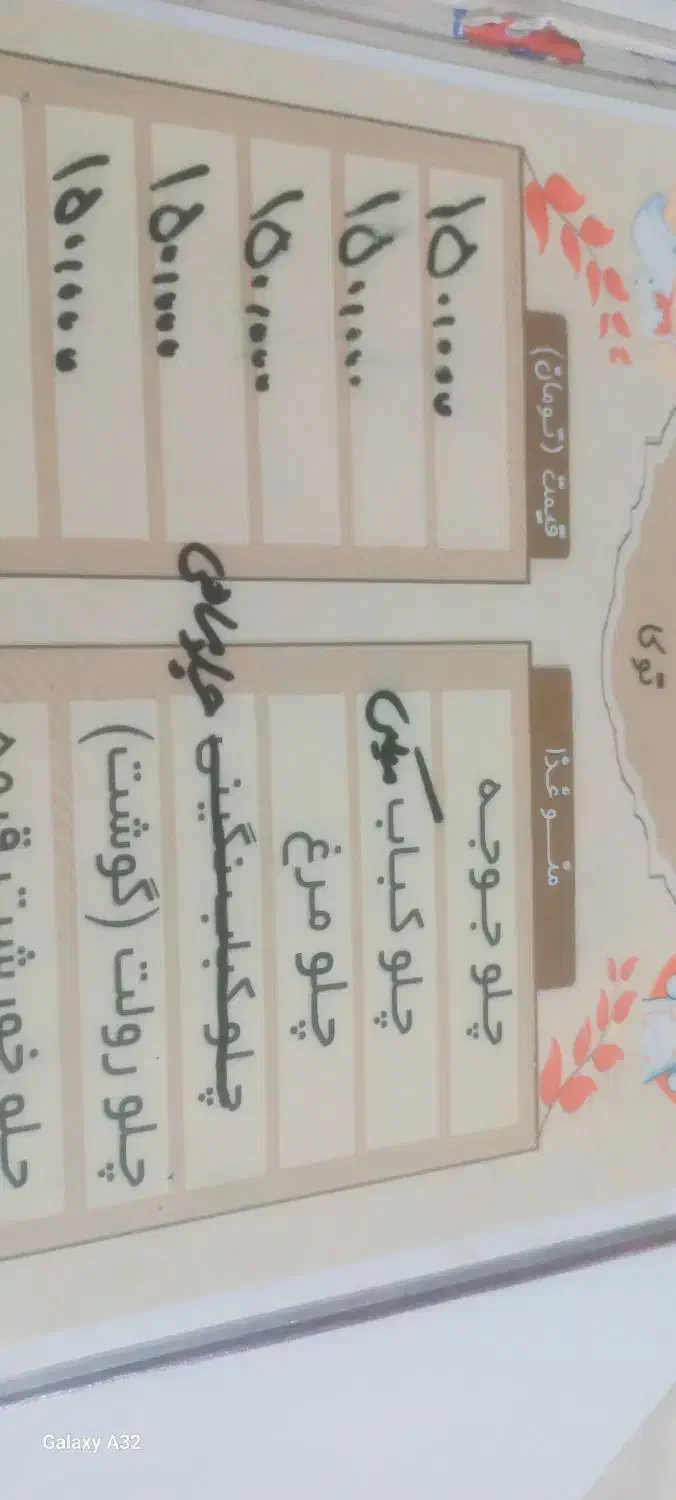 توی
منو غذا
قیمت (تومان)
چلو جوجه
۱۵۰/۰۰۰
چلو کباب
۱۵۰/۰۰۰
چلو مرغ
۱۵۰/۰۰۰
چلوکباب نگینی
۱۵۰/۰۰۰
چلو رولت (گوشت)
۱۵۰/۰۰۰
چلو خورشت
Galaxy A32